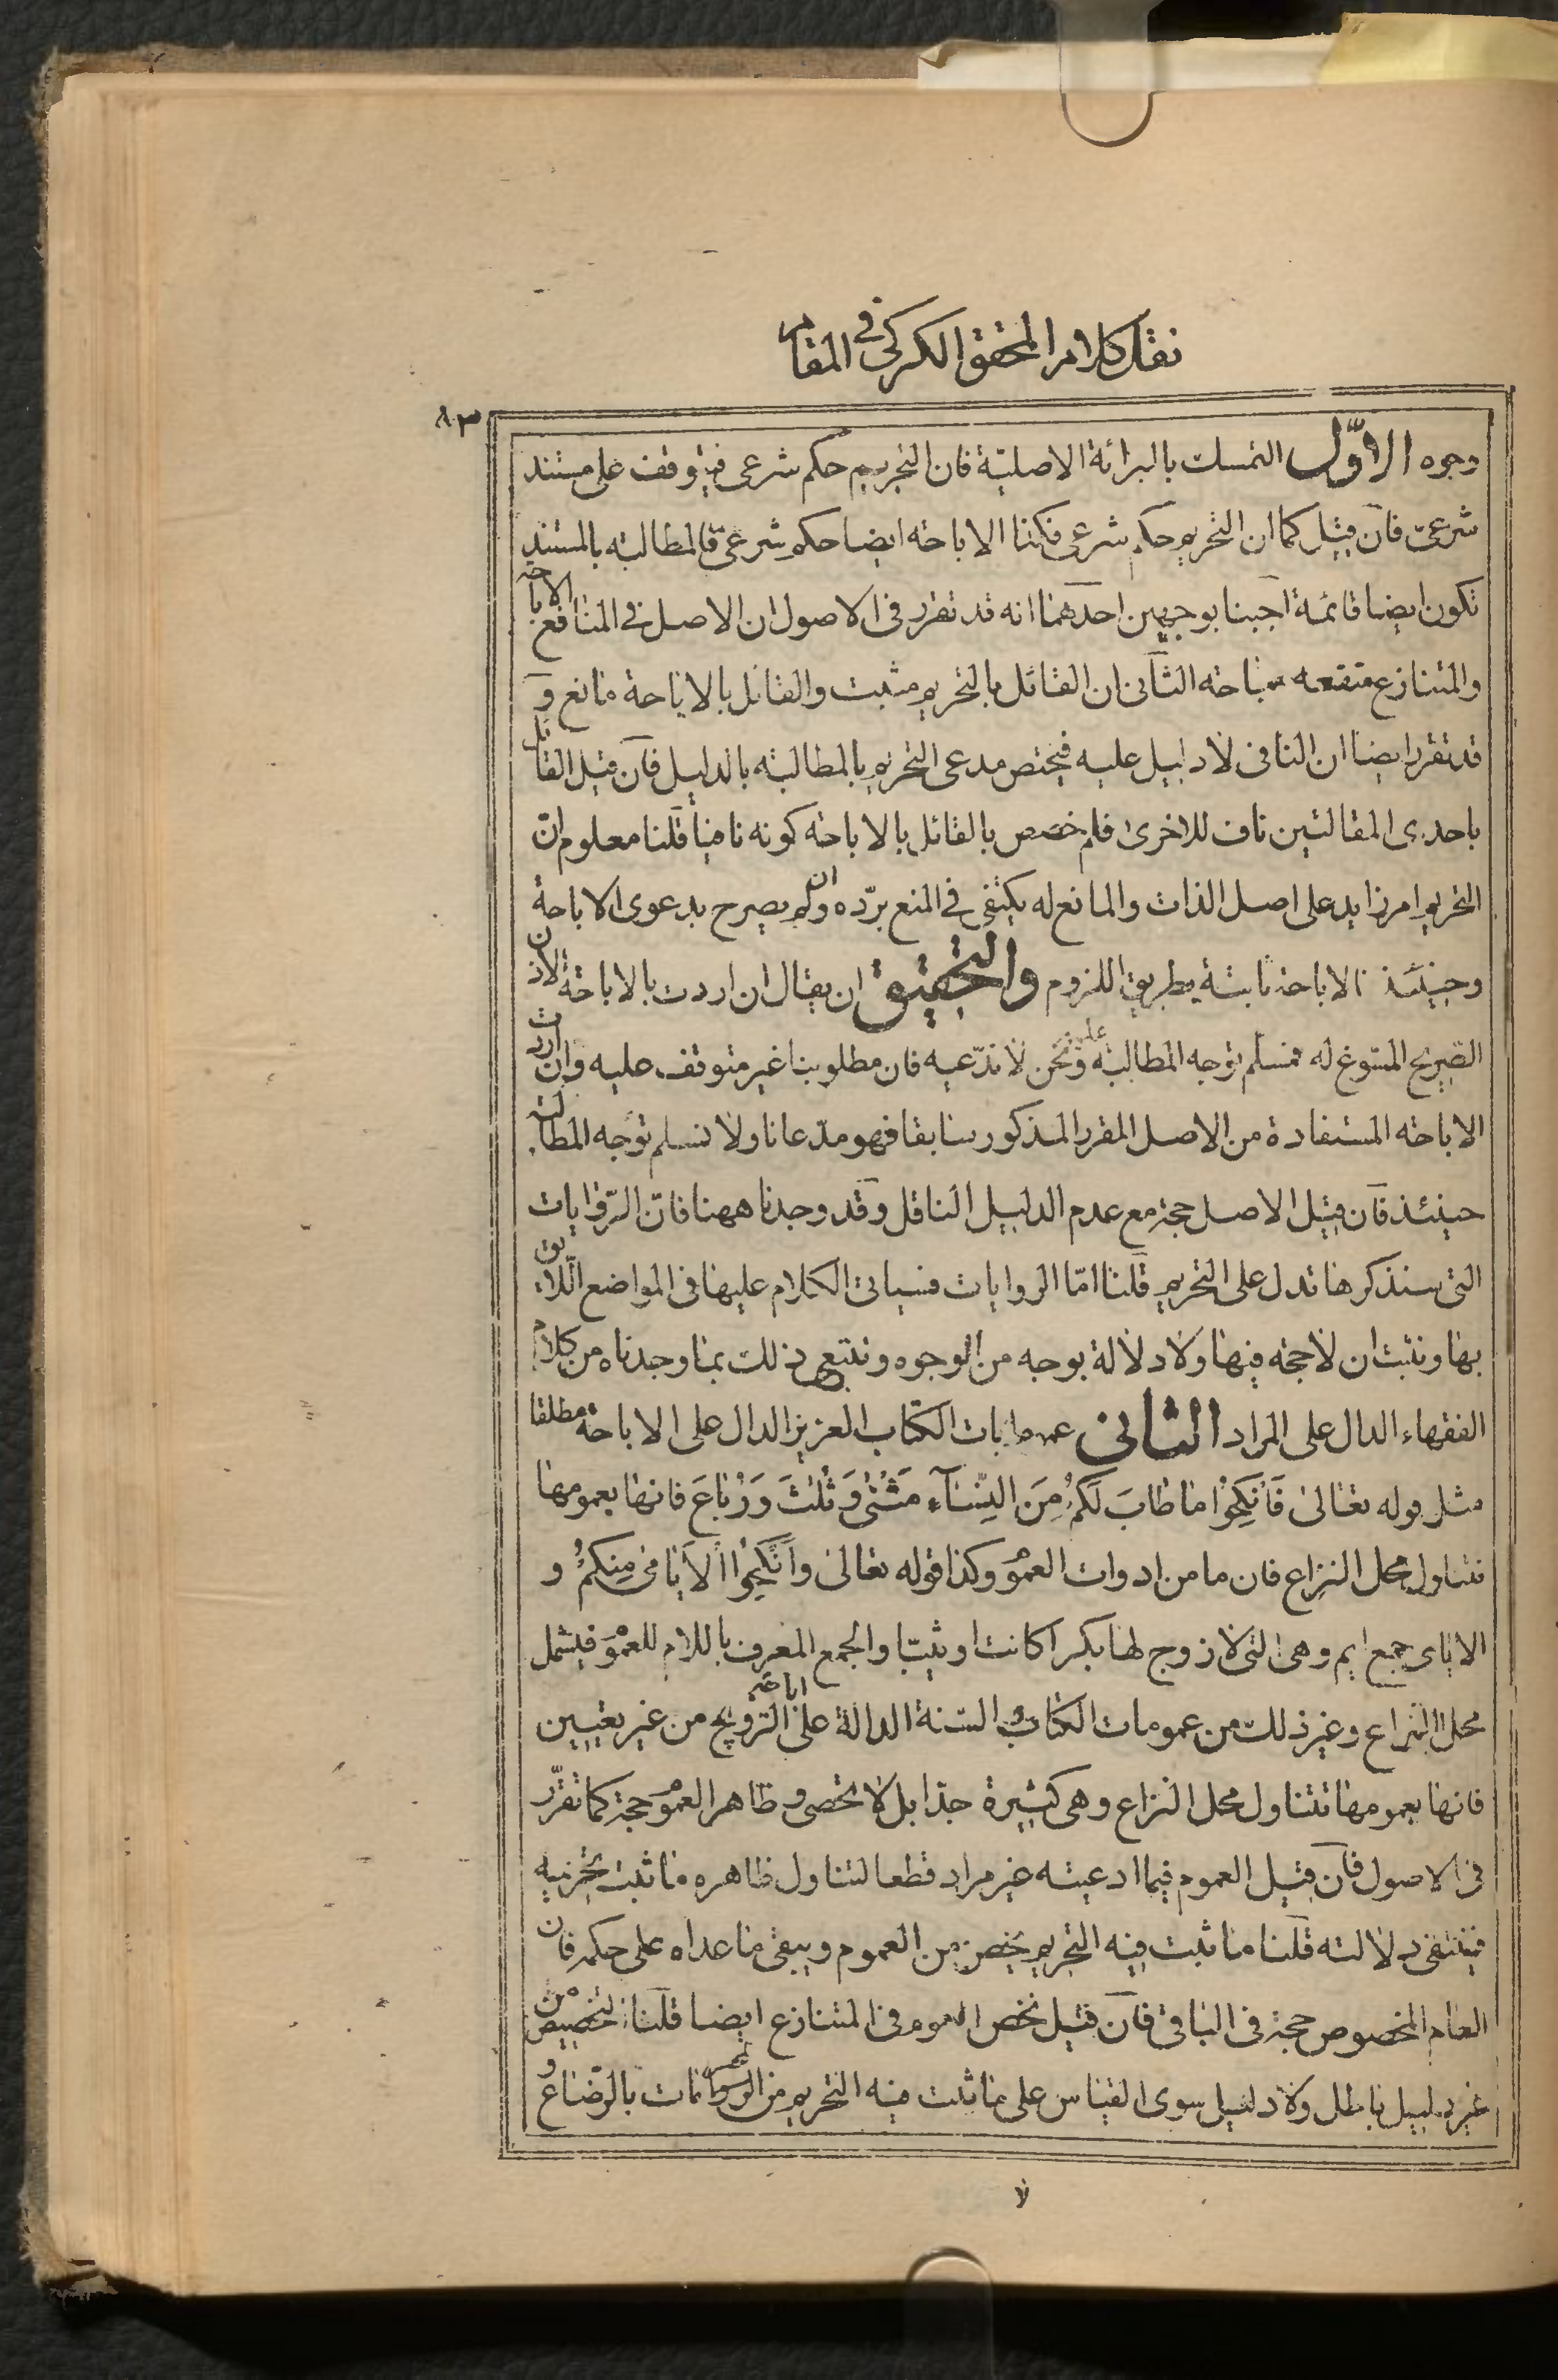 نقل كلام المحقق الكركى فى المقام
٨٣
وجوه الاوّل التمسك بالبرائة الاصليّة فان التحريم حكم شرعى فيتوقف على مستند
شرعىّ فان قيل كما ان التحريم حكم شرعى فكذا الاباحة ايضا حكم شرعىّ فالمطالبة بالمستند
تكون ايضا قائمة اجبنا بوجهين احدهما انه قد تقرر فى الاصول ان الاصل فى المنافع الاباحة
والمتنازع منفعه مباحة الثانى ان القائل بالتحريم مثبت والقائل بالاباحة مانع و
قد تقرر ايضا ان النافى لا دليل عليه فيختص مدعى التحريم بالمطالبة بالدليل فان قيل القائل
باحدى المقالتين ناف للاخرى فلم خصص بالقائل بالاباحة كونه نافيا قلنا معلوم انّ
التحريم امر زايد على اصل الذات والمانع له يكتفى فى المنع بردّه وان لم يصرح بدعوى الاباحة
وحينئذ الاباحة ثابتة بطريق اللزوم والتحقيق ان يقال ان اردت بالاباحة الاذن
الصريح المسوغ له فمسلم توجه المطالبة عليه ونحن لا ندّعيه فان مطلوبنا غير متوقف عليه وان اردت
الاباحة المستفادة من الاصل المقرر المذكور سابقا فهو مدّعانا ولا نسلم توجه المطالبة
حينئذ فان قيل الاصل حجة مع عدم الدليل الناقل وقد وجدنا ههنا فانّ الرّوايات
التى سنذكرها تدل على التحريم قلنا امّا الروايات فسياتى الكلام عليها فى المواضع اللّايق
بها ونثبت ان لا حجة فيها ولا دلالة بوجه من الوجوه ونتبع ذلك بما وجدناه من كلام
الفقهاء الدال على المراد الثانى عمومات الكتاب العزيز الدال على الاباحة مطلقا
مثل قوله تعالى فَانْكِحُوا ما طابَ لَكُمْ مِنَ النِّسَآءِ مَثْنى وَثُلٰثَ وَرُباعَ فانها بعمومها
تتناول محل النزاع فان ما من ادوات العمُوْ وكذا قوله تعالى وَاَنْكِحُوا الْاَيامى مِنْكُمْ و
الايامى جمع ايم وهى التى لا زوج لها بكرا كانت او ثيبّا والجمع المعرف باللام للعمُوْ فيشمل
محل النزاع وغير ذلك من عمومات الكتاب و السّنة الدالة على اباحة التزويج من غير تعيين
فانها بعمومها تتناول محل النزاع وهى كثيرة جدّا بل لا تحصى و ظاهر العمُوْ حجة كما تقرّر
فى الاصول فان قيل العموم فيما ادعيته غير مراد قطعا لتناول ظاهره ما ثبت تحريمه
فينتفى دلالته قلنا ما ثبت فيه التحريم يخص من العموم ويبقى ما عداه على حكمه فان
العام المخصوص حجة فى الباقى فان قيل نخص العموم فى المتنازع ايضا قلنا التخصيص من
غير دليل باطل ولا دليل سوى القياس على ما ثبت فيه التحريم من المحرمات بالرّضاع و
لا